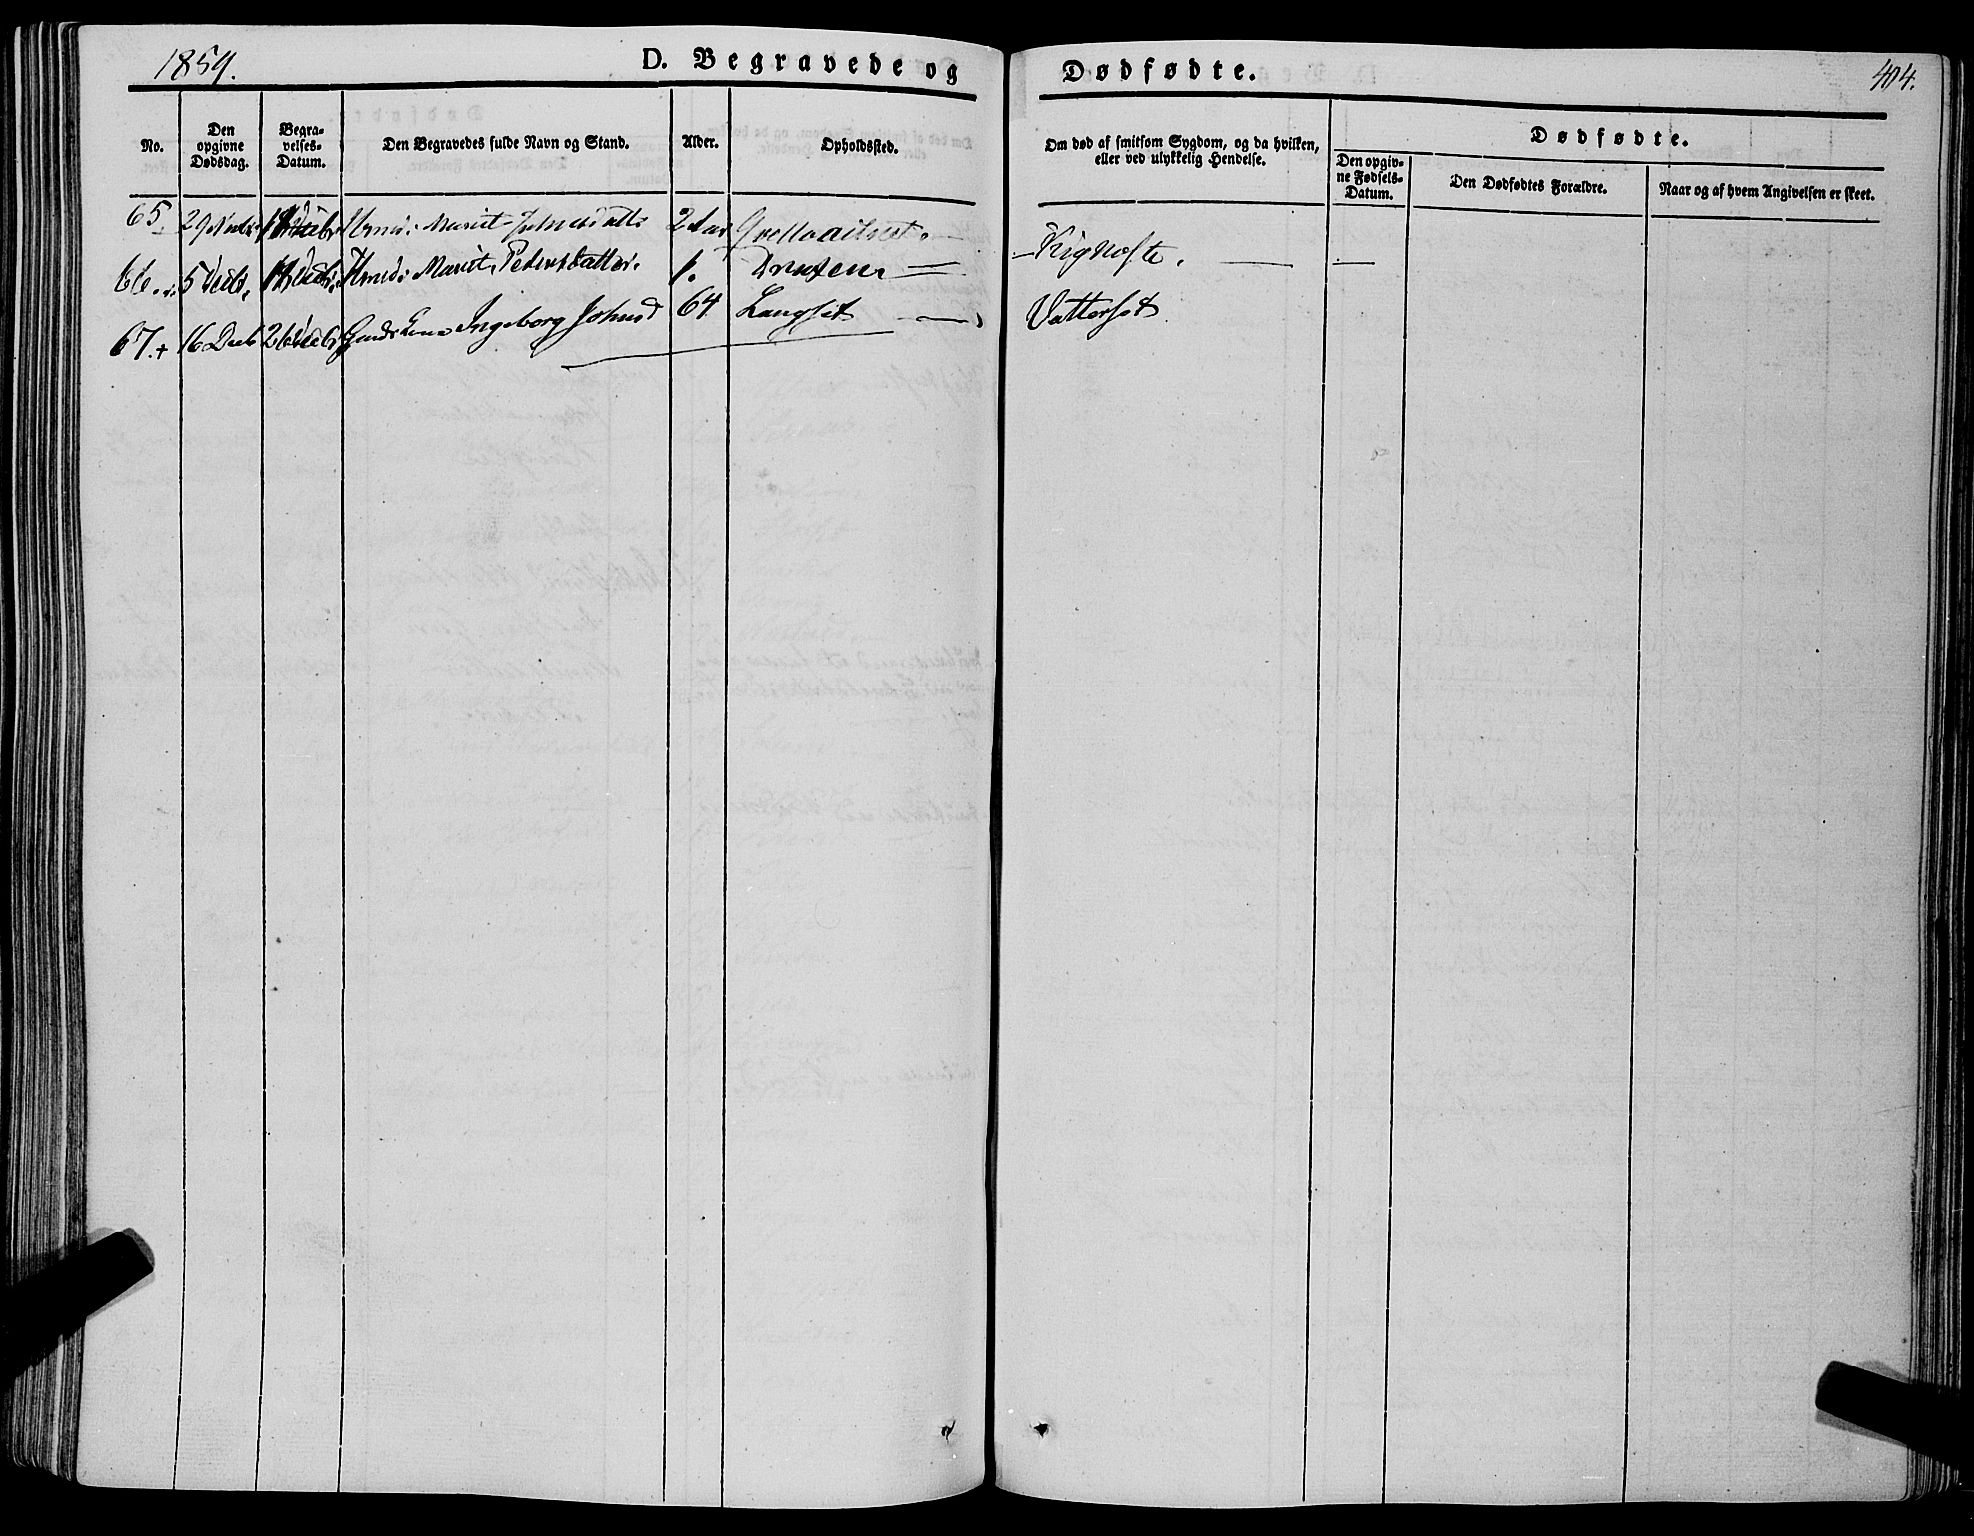 1859.
D. Begravede og
Dødfødte.
404.
No.
Den opgivne Dødsdag.
Begravelses-Datum.
Den Begravedes fulde Navn og Stand.
Alder.
Opholdssted.
Om død af smitsom Sygdom, og da hvilken,
eller ved ulykkelig Hendelse.
Dødfødte.
Den opgivne Fødsels-Datum.
Den Dødfødtes Forældre.
Naar og af hvem Angivelsen er skeet.
65 29 Marit Johnsdatter 2 Aar Kighoste.
66. 5 Decb. Marit Pedersdatter. 1.
67. + 16 Decb 26 Decb Ingeborg Johnsd 64 Langset Vattersot